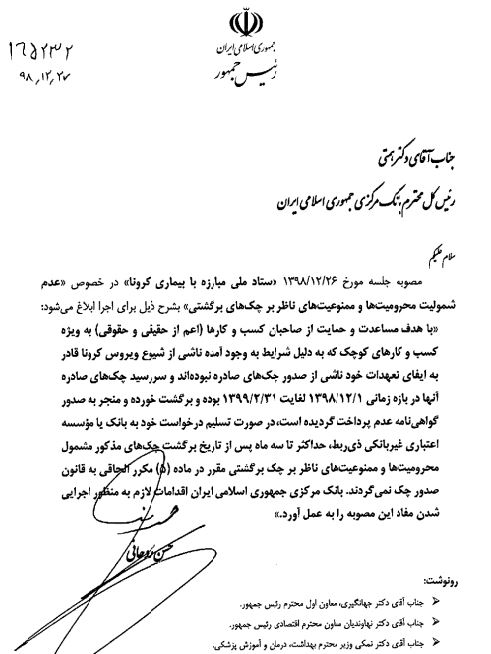 جمهوری اسلامی ایران
رئیس جمهور
۱۶۵۲۳۲
۹۸,۱۲,۲۷
جناب آقای دکتر همتی
رئیس کل محترم بانک مرکزی جمهوری اسلامی ایران
سلام علیکم
مصوبه جلسه مورخ ۱۳۹۸/۱۲/۲۶ «ستاد ملی مبارزه با بیماری کرونا» در خصوص «عدم
شمولیت محرومیت‌ها و ممنوعیت‌های ناظر بر چک‌های برگشتی» بشرح ذیل برای اجرا ابلاغ می‌شود:
«با هدف مساعدت و حمایت از صاحبان کسب و کارها (اعم از حقیقی و حقوقی) به ویژه
کسب و کارهای کوچک که به دلیل شرایط به وجود آمده ناشی از شیوع ویروس کرونا قادر
به ایفای تعهدات خود ناشی از صدور چک‌های صادره نبوده‌اند و سررسید چک‌های صادره
آنها در بازه زمانی ۱۳۹۸/۱۲/۱ لغایت ۱۳۹۹/۲/۳۱ بوده و برگشت خورده و منجر به صدور
گواهی‌نامه عدم پرداخت گردیده است، در صورت تسلیم درخواست خود به بانک یا مؤسسه
اعتباری غیربانکی ذی‌ربط، حداکثر تا سه ماه پس از تاریخ برگشت چک‌های مذکور مشمول
محرومیت‌ها و ممنوعیت‌های ناظر بر چک برگشتی مقرر در ماده (۵) مکرر الحاقی به قانون
صدور چک نمی‌گردند. بانک مرکزی جمهوری اسلامی ایران اقدامات لازم به منظور اجرایی
شدن مفاد این مصوبه را به عمل آورد.»
حسن روحانی
رونوشت:
جناب آقای دکتر جهانگیری، معاون اول محترم رئیس جمهور.
جناب آقای دکتر نهاوندیان معاون محترم اقتصادی رئیس جمهور.
جناب آقای دکتر نمکی وزیر محترم بهداشت، درمان و آموزش پزشکی.